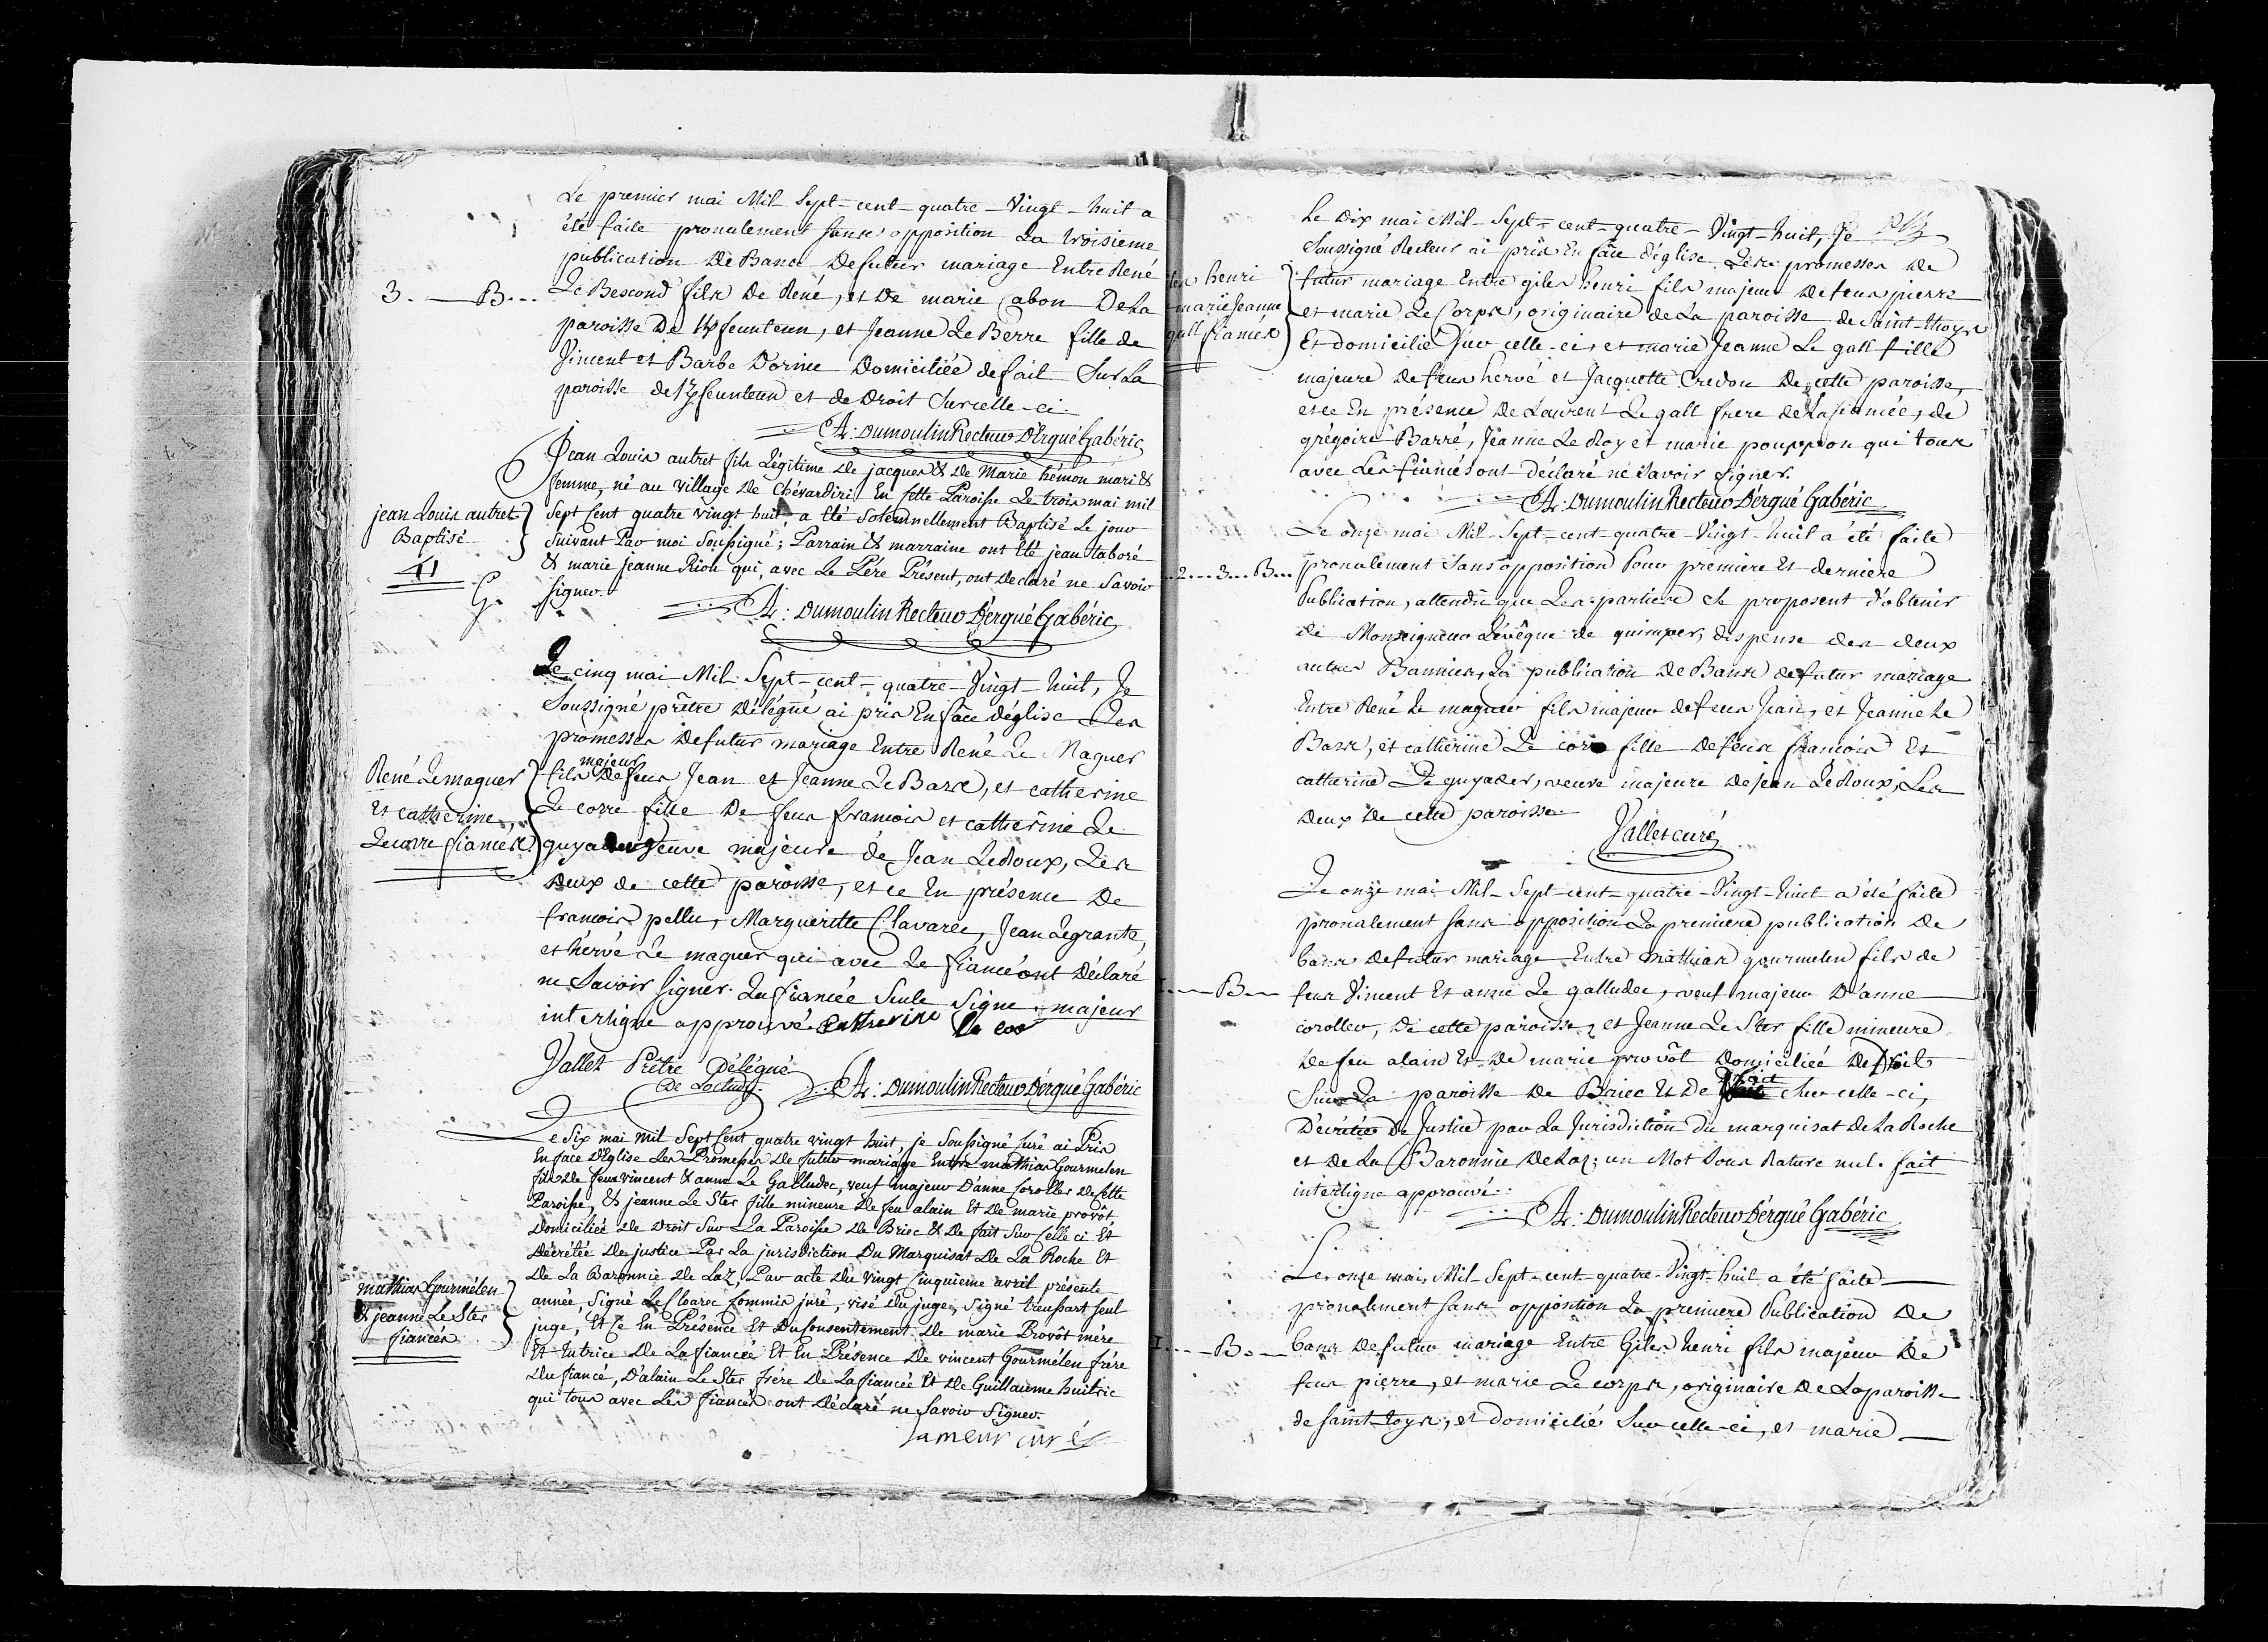 Le premier mai Mil-Sept-cent-quatre-Vingt-huit a
été faite pronalement sans opposition La troisieme
publication De Bans De futur mariage Entre René
3. B...
Le Bescond fils De René, et De marie Cabon De La
paroisse De feunteun, et Jeanne Le Berre fille de
Vincent et Barbe Domiciliée de fait Sur La
paroisse de feunteun et de Droit Sur celle-ci.
A: Dumoulin Recteur D'Ergué Gabéric
Jean Louis autret fils Légitime De jacques & De Marie hémon mari &
femme, né au village De Chévardiri En Cette Paroisse Le trois mai mil
jean Louis autret
Baptisé
Sept Cent quatre vingt huit, a été Solemnellement Baptisé Le jour
Suivant Par moi Soussigné; Parrain & marraine ont Eté jean taboré
& marie jeanne Riou qui, avec Le Pére Présent, ont Declaré ne Savoir
G. signer.
A: Dumoulin Recteur D'érgué Gabéric
Le cinq mai Mil-Sept-cent-quatre-Vingt-huit, Je
Soussigné prêtre Délégué ai pris En face d'église Les
promesses De futur mariage Entre René Le Maguer
majeur
René Lemaguer
Et catherine
Lecorre fiancés
fils De feus Jean et Jeanne Le Bars, et catherine
Le corre fille De feus francois et catherine Le
guyader veuve majeure de Jean Ledoux, Les
Deux de cette paroisse, et ce En présence De
francois pellu, Margueritte Clavarec, Jean Legrante,
et hervé Le maguer qui avec Le fiancé ont Déclaré
ne Savoir Signer. La fiancée Seule Signe. majeur
interligne approuvé. Catherine Le cor
Vallet Prêtre Délégué
De Loctudy.
A: Dumoulin Recteur D'érgué Gabéric
Le Six mai mil Sept Cent quatre vingt huit, je Soussigné Curé ai Pris
En face D'Eglise Les Promesses De futur mariage Entre mathias Gourmelen
fils De feus vincent & anne Le Galludec, veuf majeur D'anne Coroller De Cette
Paroisse, & jeanne Le Ster fille mineure De feu alain Et De marie provôt
Domiciliée De Droit Sur La Paroisse De Briec & De fait Sur Celle ci Et
Décrétée De justice Par La jurisdiction Du Marquisat De La Roche Et
De La Baronnie De Laz, Par acte Du vingt Cinquieme avril présente
mathias Gourmélen
& jeanne Le Ster
fiancés
année, Signé Le Cloarec Commis juré, visé Du juge, Signé treussart Seul
juge, Et Ce En Présence Et Du Consentement De marie Provôt mére
Et tutrice De La fiancée Et En Présence De vincent Gourmélen frére
Du fiancé, D'alain Le Ster frére De La fiancée Et De Guillaume huitric
qui tous avec Les fiancés ont Déclaré ne Savoir Signer.
Lameur curé
Le Dix mai Mil-Sept-cent-quatre-Vingt-huit, Je
Soussigné Recteur ai pris En face d'église Les promesses De
henri
marie Jeanne
gall fiancés
futur mariage Entre giles henri fils majeur De feus pierre
et marie Le Corps, originaire de La paroisse de Saint-thoys
Et domicilié Sur celle-ci, et marie Jeanne Le gall fille
majeure De feus hervé et Jacquette Credou De cette paroisse,
et ce En présence De Laurent Le gall frere de La fiancée, de
grégoire Barré, Jeanne Le Roy et marie pouppon qui tous
avec Les fiancés ont déclaré ne Savoir signer.
A: Dumoulin Recteur D'érgué Gabéric
Le onze mai Mil-Sept-cent-quatre-Vingt-huit a été faite
2...3...B...
pronalement Sans opposition Pour premiere Et derniere
Publication, attendu que Les parties Se proposent d'obtenir
de Monseigneur L'évêque de quimper, dispense des deux
autres Bannies, La publication De Bans de futur mariage
Entre René Le maguer fils majeur de feus Jean, et Jeanne Le
Bars, et catherine Le corre fille De feus francois Et
catherine Le guyader, veuve majeure de Jean Ledoux, Les
Deux De cette paroisse.
Vallet curé
Le onze mai Mil-Sept-cent-quatre-Vingt-huit a été faite
pronalement Sans opposition La premiere publication De
bans De futur mariage Entre Mathias gourmelen fils de
1....B...
feus Vincent Et anne Le galludec, veuf majeur D'anne
corolleu, De cette paroisse, et Jeanne Le Ster fille mineure
De feu alain Et De marie provôt Domiciliée De Droit
fait
Sur La paroisse De Briec Et De Sur celle-ci,
Décrétée De Justice par La Jurisdiction du marquisat De La Roche
et De La Baronnie De Laz; un Mot Sous Rature nul. fait
interligne approuvé:
A: Dumoulin Recteur D'érgué Gabéric
Le onze mai, Mil-Sept-cent-quatre-Vingt-huit a été faite
pronalement Sans opposition La premiere Publication De
1....B.
bans De futur mariage Entre Giles henri fils majeur De
feus pierre, et marie Le corps, originaire De La paroisse
de Saint-toys, et domicilié Sur celle-ci, et marie